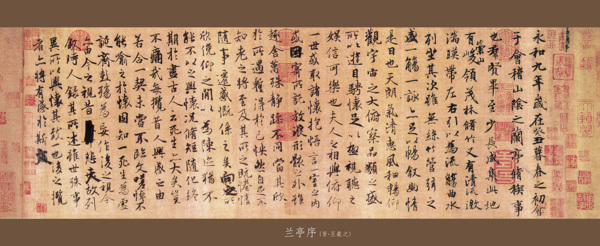 永和九年歲在癸丑暮春之初會
于會稽山陰之蘭亭脩稧事
也羣賢畢至少長咸集此地
有崇山峻領茂林脩竹又有清流激
湍暎帶左右引以為流觴曲水
列坐其次雖無絲竹管弦之
盛一觴一詠亦足以暢叙幽情
是日也天朗氣清惠風和暢仰
觀宇宙之大俯察品類之盛
所以遊目騁懷足以極視聽之
娛信可樂也夫人之相與俯仰
一世或取諸懷抱悟言一室之內
或因寄所託放浪形骸之外雖
趣舍萬殊靜躁不同當其欣
於所遇暫得於己怏然自足不
知老之將至及其所之既惓情
隨事遷感慨係之矣向之所
欣俛仰之閒以為陳迹猶不
能不以之興懷況脩短隨化終
期於盡古人云死生亦大矣豈
不痛哉每攬昔人興感之由
若合一契未嘗不臨文嗟悼不
能喻之於懷固知一死生為虛
誕齊彭殤為妄作後之視今
亦由今之視昔悲夫故列
叙時人錄其所述雖世殊事
異所以興懷其致一也後之攬
者亦將有感於斯文
兰亭序 (晋·王羲之)